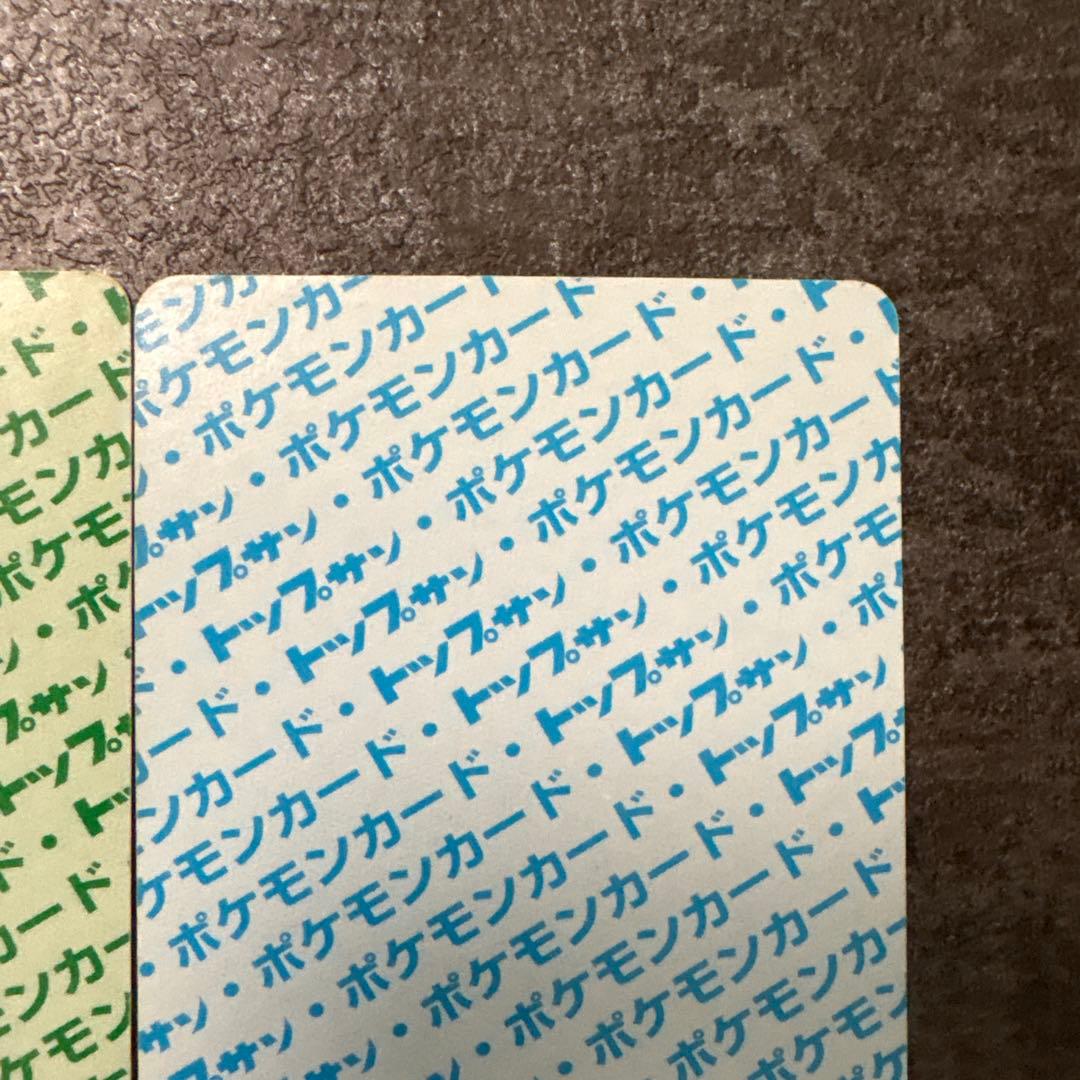 モンカ
ポケモンカー
・ポケモンカード
トップサン・ポケモンカード・
トップサン・ポケモンカード・ト
トップサン・ポケモンカード・
ド・トップサン・ポケモンカード
カード・トップサン・ポケモンカ
ンカード・トップサン・ポケモ
ケモンカード・トップサン・ポ
・ポケモンカード・トップサン・
サン・ポケモンカード・トップ
トップサン・ポケモンカード・ト
・ポケモンカード
ポケモンカー
ポケモン
ド・
カード
モンカー
ポケモン
・ポケ
プサン
トップサン
・トップ
ド・ト
カード
ンカー
ケモン